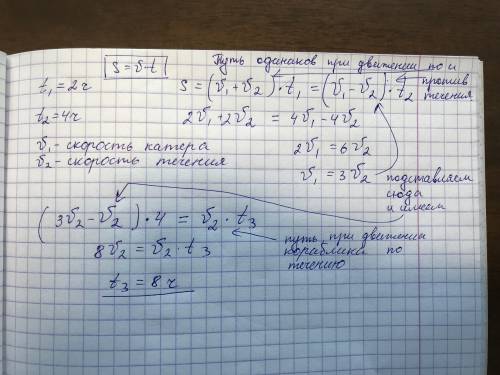 S = v·t
Путь одинаков при движении по и против течения
t₁ = 2ч
S = (v₁ + v₂)·t₁ = (v₁ - v₂)·t₂
t₂ = 4ч
2v₁ + 2v₂ = 4v₁ - 4v₂
v₁ - скорость катера
2v₁ = 6v₂
v₂ - скорость течения
v₁ = 3v₂
подставляем
сюда
и имеем
(3v₂ - v₂)·4 = v₂·t₃
путь при движении
кораблика по
течению
8v₂ = v₂·t₃
t₃ = 8ч